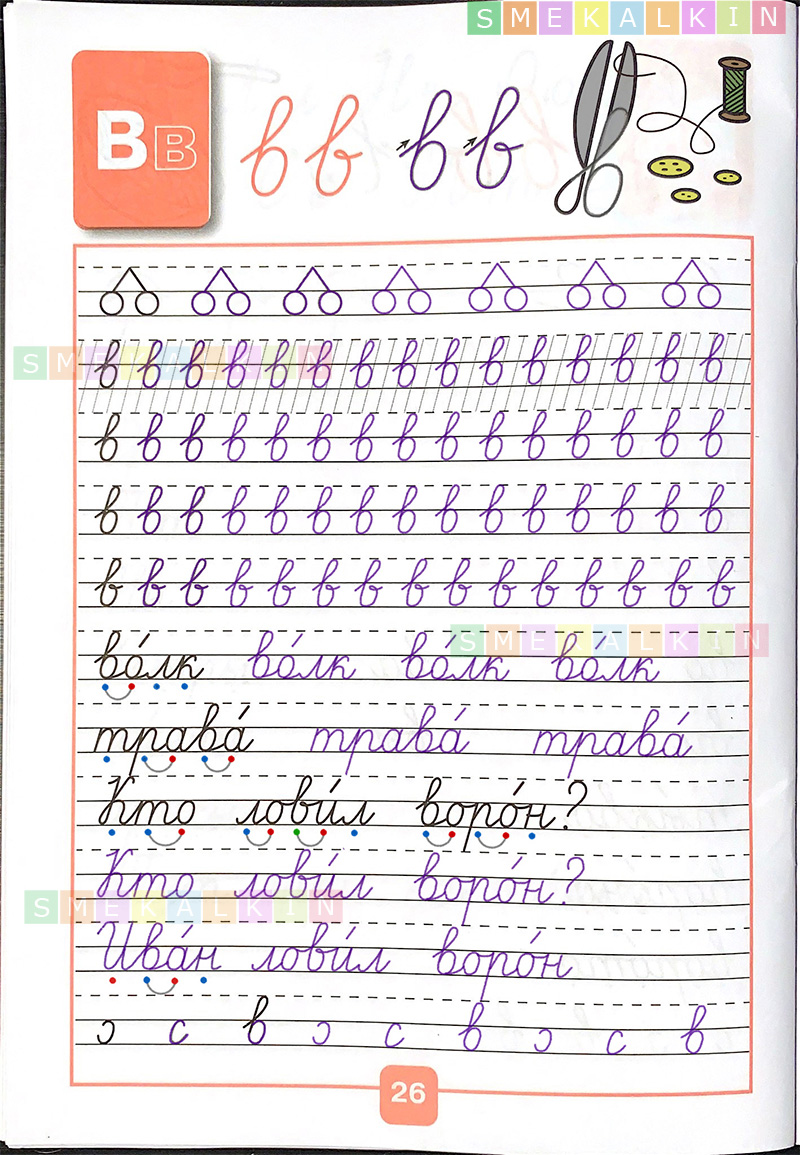 SMEKALKIN
В В
в в в в
SMEKALKIN
в в в в в в в в в в в в в в в
в в в в в в в в в в в в в в в
в в в в в в в в в в в в в в в
в в в в в в в в в в в в в в в
SMEKALKIN
во́лк во́лк во́лк во́лк
трава́ трава́ трава́
Кто лови́л воро́н?
Кто лови́л воро́н?
SMEKALKIN
Ива́н лови́л воро́н
ɔ с в ɔ с в ɔ с в
26